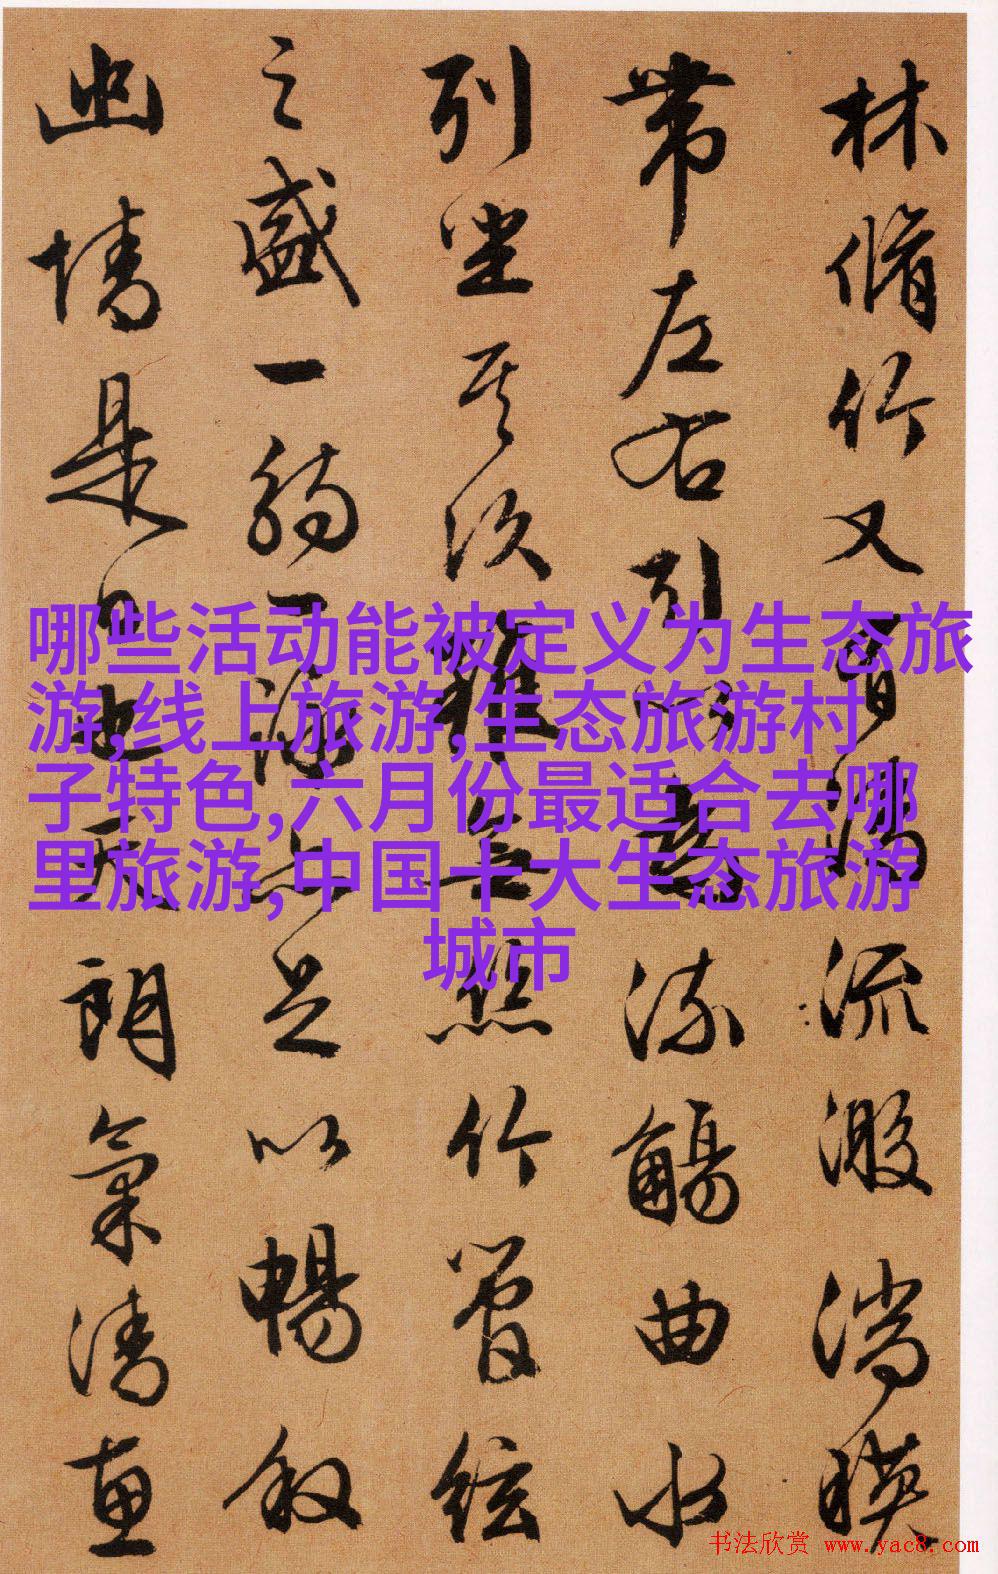 林脩竹又有清流激湍暎
帶左右引以為流觴曲水
列坐其次雖無絲竹管絃
之盛一觴一詠亦足以暢敘
幽情是日也天朗氣清惠
哪些活动能被定义为生态旅
游,线上旅游,生态旅游村
子特色,六月份最适合去哪
里旅游,中国十大生态旅游
城市
书法欣赏 www.yac8.com